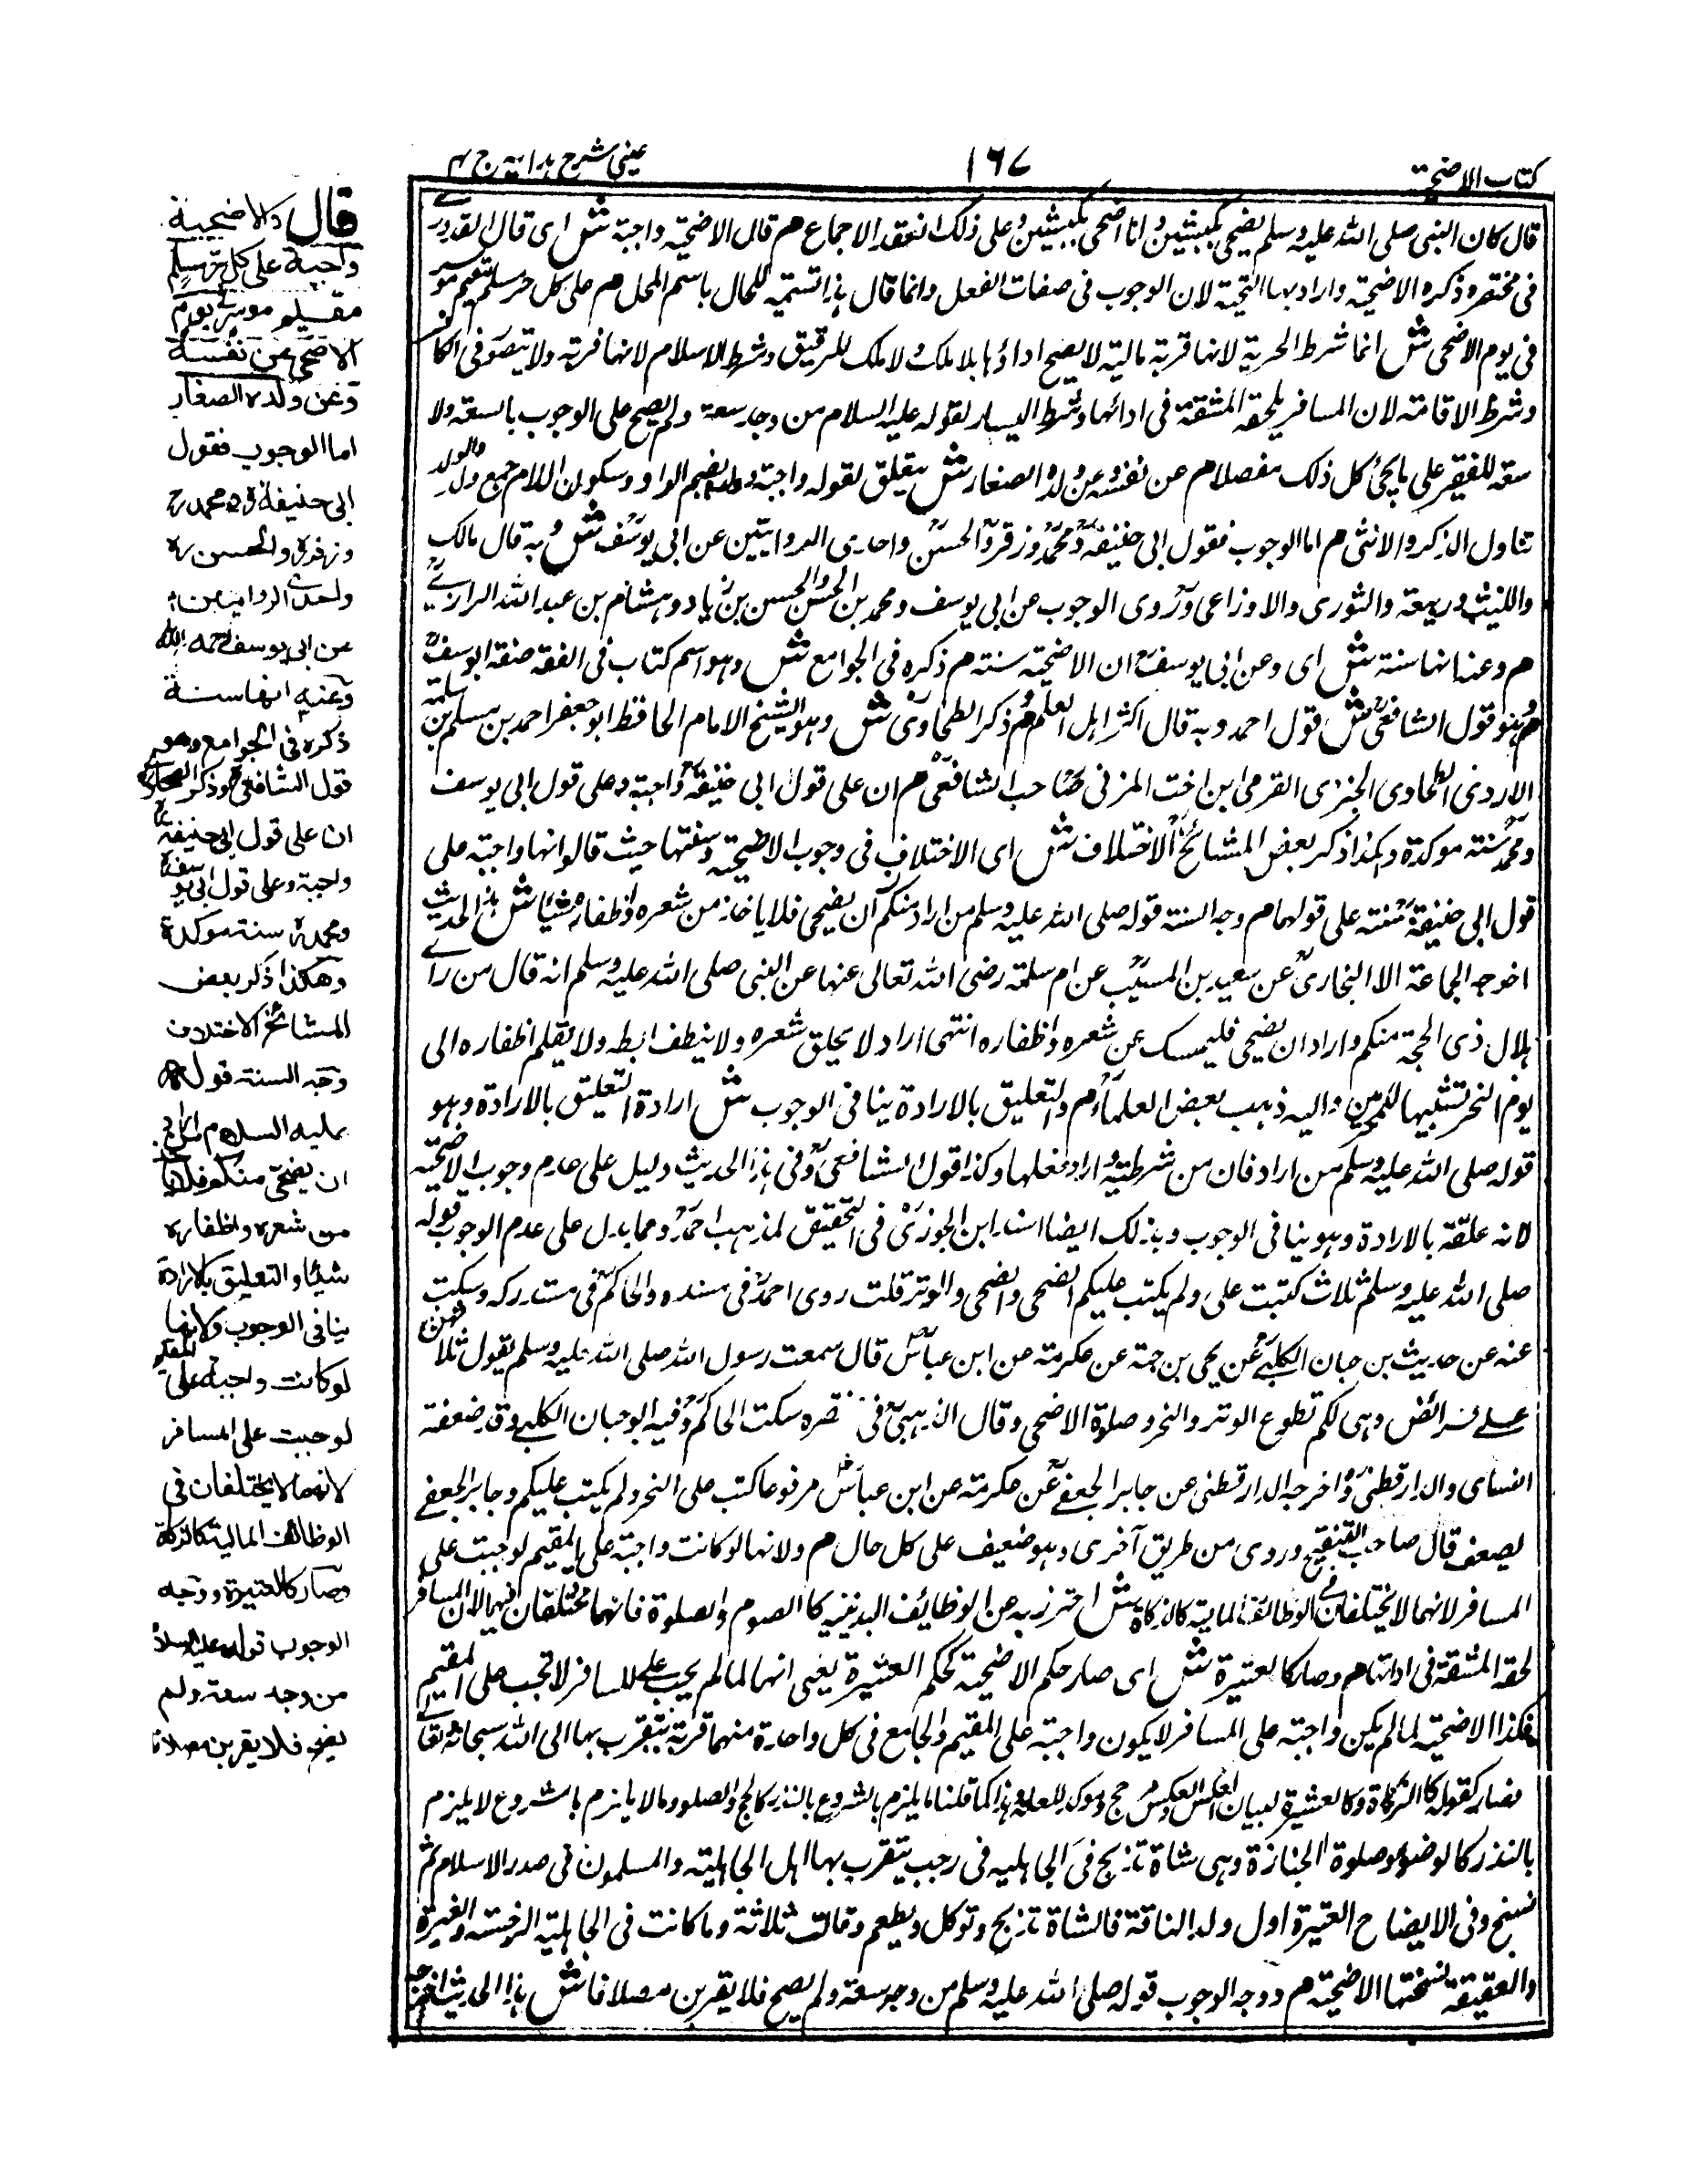 كتاب الاضحية
١٦٧
عينى شرح هداية ج ٤
قال كان النبى صلى الله عليه وسلم يضحى بكبشين وانا اضحى بكبشين وعلى ذلك انعقد الاجماع م قال الاضحية واجبة ش اى قال القدورى
فى مختصره ذكره الاضحية واراد بها التضحية لان الوجوب فى صفات الفعل وانما قال هذا تسمية للحال باسم المحل م على كل حر مسلم مقيم موسر
فى يوم الاضحى ش انما شرط الحرية لانها قربة مالية لا يصح اداؤها بلا ملك ولا ملك للرقيق وشرط الاسلام لانها قربة ولا يتصور فى الكافر
وشرط الاقامة لان المسافر يلحقه المشقة فى ادائها وشرط اليسار لقوله عليه السلام من وجد سعة ولم يضح على الوجوب بالسعة ولا
سعة للفقير على ما يجئ كل ذلك مفصلا م عن نفسه وعن ولده الصغار ش يتعلق لقوله واجبة وولد بضم الواو وسكون اللام جمع ولد والولد
تناول الذكر والانثى م اما الوجوب فقول ابى حنيفة ومحمد وزفر والحسن واحدى الروايتين عن ابى يوسف ش وبه قال مالك
والليث وربيعة والثورى والاوزاعى وروى الوجوب عن ابى يوسف ومحمد بن الحسن والحسن بن زياد وهشام بن عبد الله الرازى
م وعنه انها سنة ش اى وعن ابى يوسف ان الاضحية سنة م ذكره فى الجوامع ش وهو اسم كتاب فى الفقه صنفه ابو يوسف
م وهو قول الشافعى ش قول احمد وبه قال اكثر اهل العلم م وذكر الطحاوى ش وهو الشيخ الامام الحافظ ابو جعفر احمد بن مسلم بن سلمة
الازدى الطحاوى الجيزى القرمى ابن اخت المزنى صاحب الشافعى م ان على قول ابى حنيفة واجبة وعلى قول ابى يوسف
ومحمد سنة موكدة وهكذا ذكر بعض المشائخ الاختلاف ش اى الاختلاف فى وجوب الاضحية وسنتها حيث قالوا انها واجبة على
قول ابى حنيفة سنة على قولهما م وجه السنة قوله صلى الله عليه وسلم من اراد منكم ان يضحى فلا ياخذ من شعره واظفاره شيئا ش هذا الحديث
اخرجه الجماعة الا البخارى عن سعيد بن المسيب عن ام سلمة رضى الله تعالى عنها عن النبى صلى الله عليه وسلم انه قال من راى
هلال ذى الحجة منكم واراد ان يضحى فليمسك عن شعره واظفاره انتهى اراد لا يحلق شعره ولا ينظف ابطه ولا يقلم اظفاره الى
يوم النحر تشبيها للمحرمين واليه ذهب بعض العلماء م والتعليق بالارادة ينافى الوجوب ش ارادة التعليق بالارادة وهو
قوله صلى الله عليه وسلم من اراد فان من شرطية واراد فعلها وكذا قول الشافعى وفى هذا الحديث دليل على عدم وجوب الاضحية
لانه علقه بالارادة وهو ينافى الوجوب وبذلك ايضا اسند ابن الجوزى فى التحقيق لمذهب احمد ومما يدل على عدم الوجوب قوله
صلى الله عليه وسلم ثلاث كتبت على ولم يكتب عليكم الضحى والضحى والوتر قلت روى احمد فى مسنده والحاكم فى مستدركه وسكت
عنه عن حديث بن حبان الكلبى عن يحى بن حمة عن عكرمة عن ابن عباس قال سمعت رسول الله صلى الله عليه وسلم يقول ثلاث هن
على فرائض وهى لكم تطوع الوتر والنحر وصلوة الاضحى وقال الذهبى فى مختصره سكت الحاكم وفيه ابو حبان الكلبى وقد ضعفه
النساى والدارقطنى واخرجه الدارقطنى عن جابر الجعفى عن عكرمة عن ابن عباس مرفوعا كتب على النحر ولم يكتب عليكم وجابر الجعفى
يضعف قال صاحب التنقيح وروى من طريق آخرى وهو ضعيف على كل حال م ولانها لو كانت واجبة على المقيم لوجبت على
المسافر لانهما لا يختلفان فى الوظائف المالية كالزكاة ش احترز به عن الوظائف البدنية كالصوم والصلوة فانهما يختلفان فيهما لان المسافر
لحقه المشقة فى ادائها م وصار كالعتيرة ش اى صار حكم الاضحية كحكم العتيرة يعنى انهما لما لم يجب على المسافر لا تجب على المقيم
فكذا الاضحية لما لم يكن واجبة على المسافر لا يكون واجبة على المقيم والجامع فى كل واحدة منهما قربة يتقرب بها الى الله سبحانه تعالى
فصار كقوله كالزكاة وكالعتيرة لبيان العكس والعكس مرجح وموكد للعلة وهذا كما قلنا ما يلزم بالشروع بالنذر كالحج والصلوة وما لا يلزم بالشروع لا يلزم
بالنذر كالوضوء وصلوة الجنازة وهى شاة تذبح فى الجاهلية فى رجب يتقرب بها اهل الجاهلية والمسلمون فى صدر الاسلام ثم
نسخ وفى الايضاح العتيرة اول ولد الناقة فالشاة تذبح وتوكل ويطعم وقالت ثلاثة وما كانت فى الجاهلية الرجبية والعتيرة
والعقيقة نسختها الاضحية م ووجه الوجوب قوله صلى الله عليه وسلم من وجد سعة ولم يضح فلا يقربن مصلانا ش هذا الحديث اخرجه
قال والاضحية
واجبة على كل حر مسلم
مقيم موسر فى يوم
الاضحى عن نفسه
وعن ولده الصغار
اما الوجوب فقول
ابى حنيفة رح ومحمد رح
وزفر رح والحسن رح
واحدى الروايتين
عن ابى يوسف رحمه الله
وعنه انها سنة
ذكره فى الجوامع وهو
قول الشافعى رح وذكر الطحاوى
ان على قول ابى حنيفة رح
واجبة وعلى قول ابى يوسف رح
ومحمد رح سنة موكدة
وهكذا ذكر بعض
المشائخ الاختلاف
وجه السنة قوله
عليه السلام من اراد
ان يضحى منكم فلا ياخذ
من شعره واظفاره
شيئا والتعليق بالارادة
ينافى الوجوب ولانها
لو كانت واجبة على المقيم
لوجبت على المسافر
لانهما لا يختلفان فى
الوظائف المالية كالزكاة
وصار كالعتيرة ووجه
الوجوب قوله عليه السلام
من وجد سعة ولم
يضح فلا يقربن مصلانا